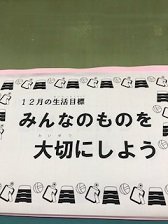 12月の生活目標
みんなのものを
たいせつ
大切にしよう